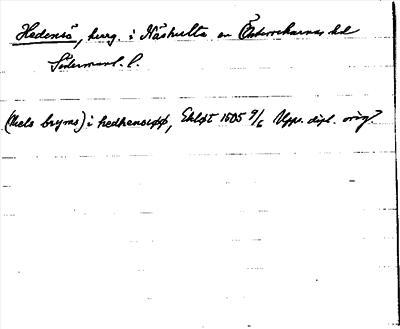 Hedensö, herrg. i Näshulta sn Österrekarnes hd
Södermanl. l.
(Niels bryms) i hedhensøø, Ekløt 1505 9/6 Upps. dipl. orig.